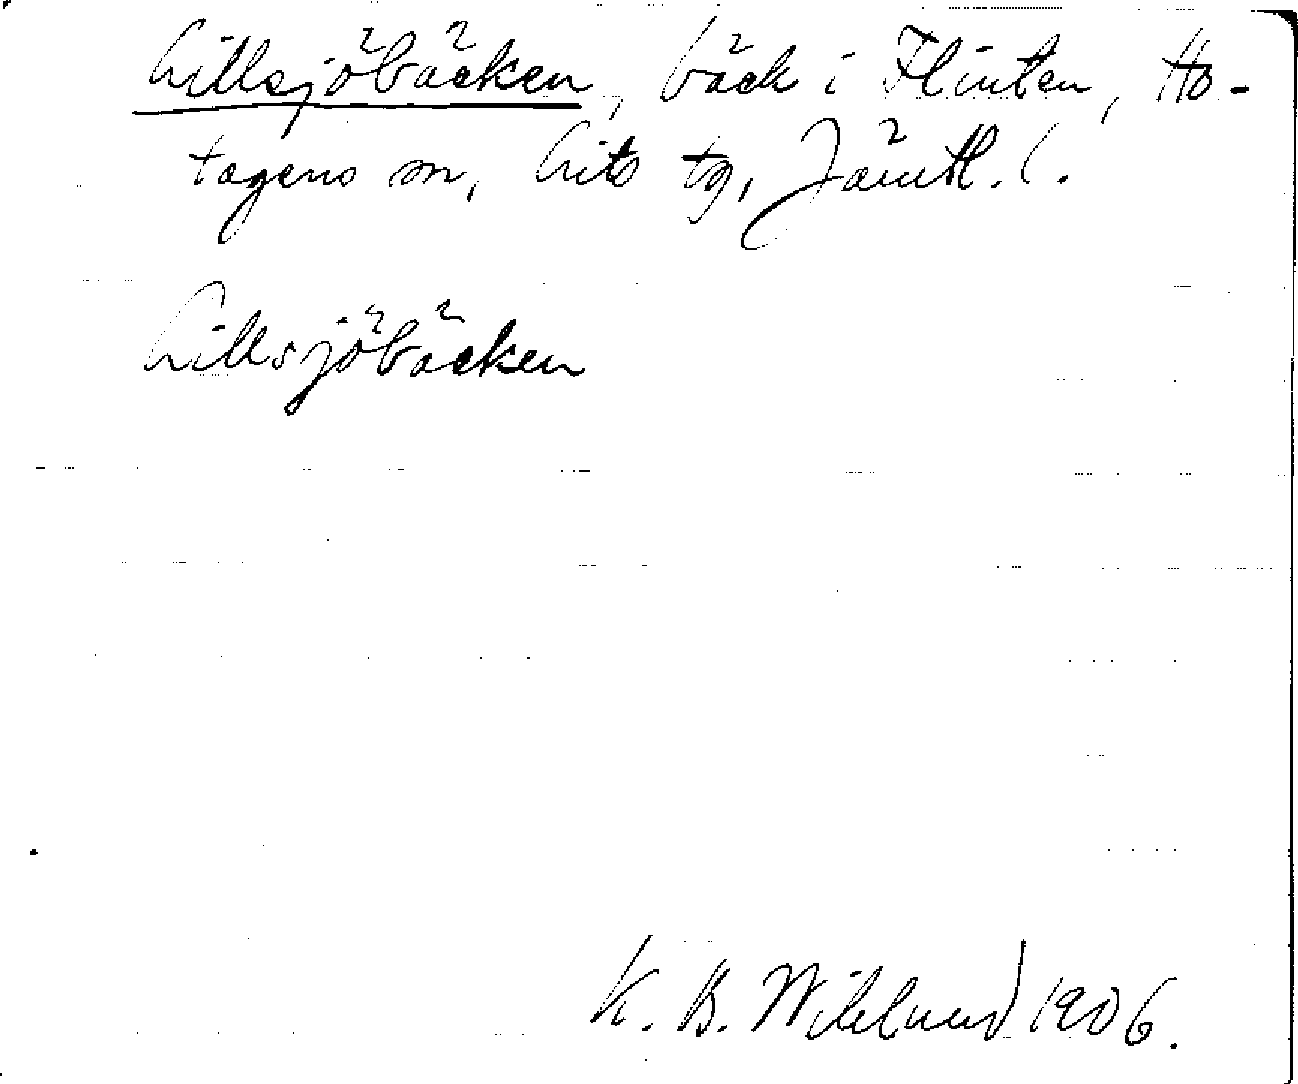 Lillsjöbäcken, bäck i Flinten, Ho-
tagens sn, Lits tg, Jämtl. l.
Lillsjöbäcken
K. B. Wiklund 1906.